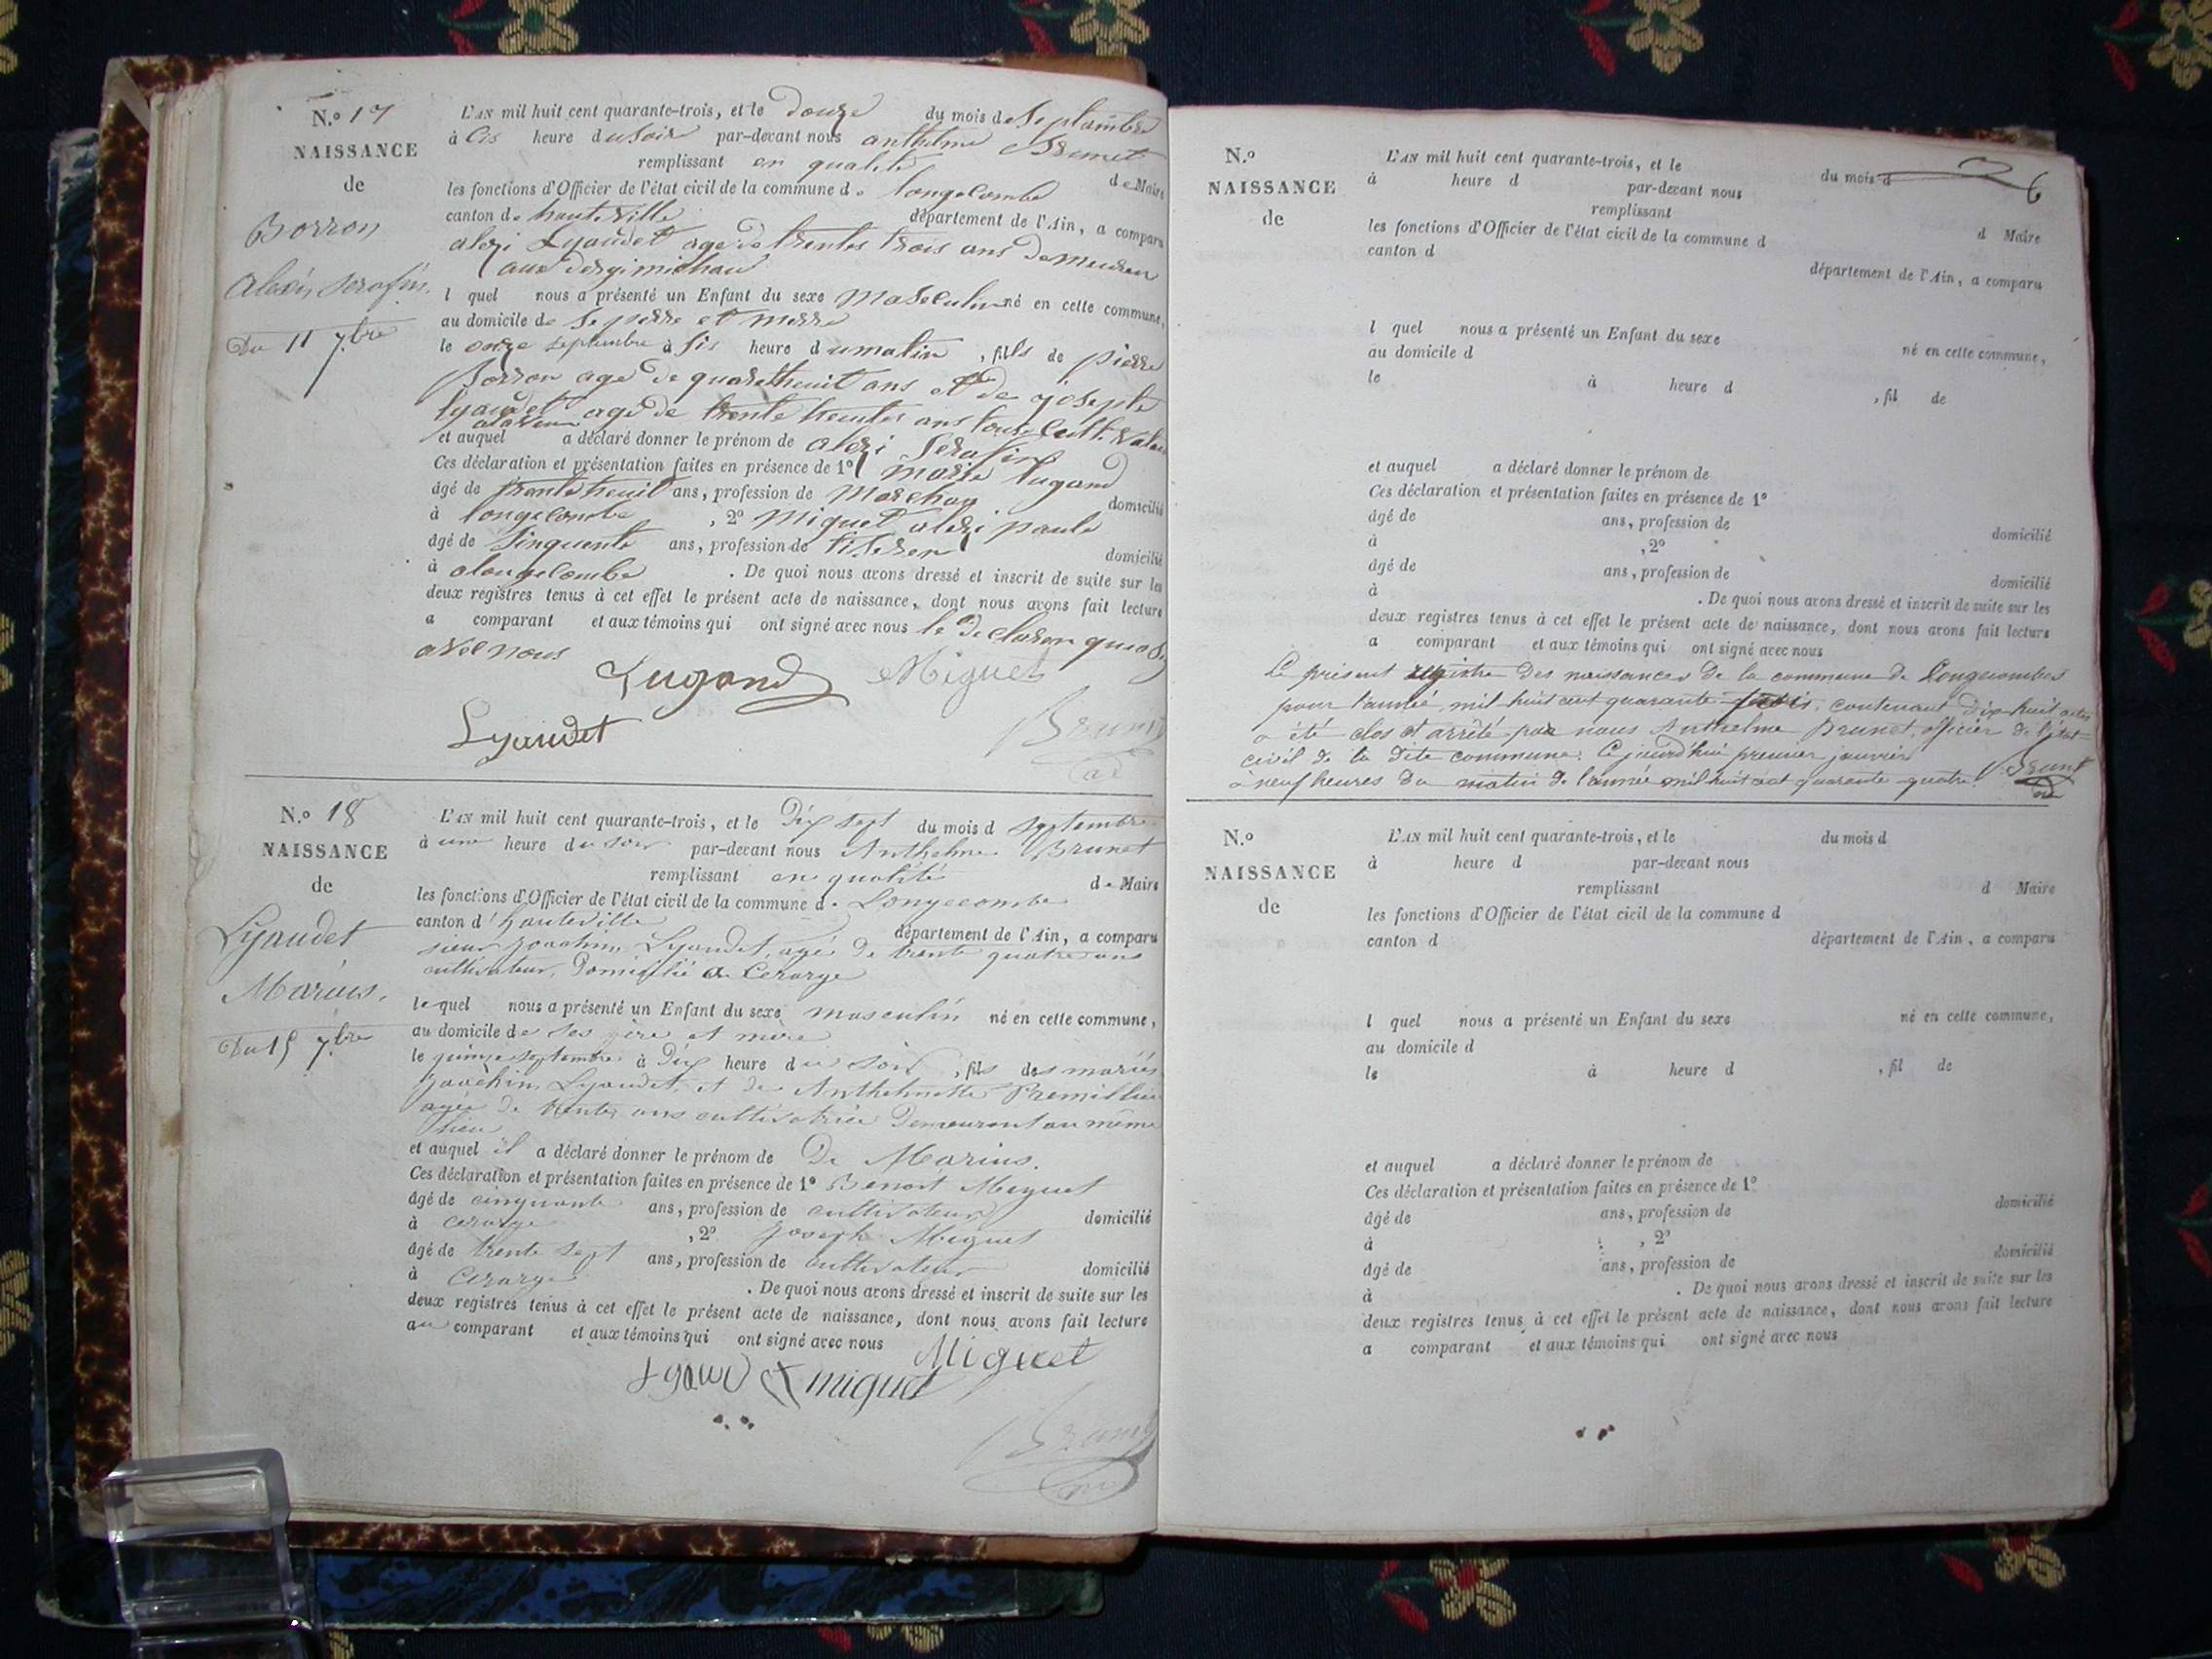 N.o 17
NAISSANCE
de
Borron
alexis serafin.
Du 11 7bre
L'AN mil huit cent quarante-trois, et le Douze du mois de septambre
à Cis heure du soir par-devant nous anthelme Brunet
remplissant en qualité de Maire
les fonctions d'Officier de l'état civil de la commune de longecombe
canton de hauteville département de l'Ain, a comparu
alexi Lyaudet age de trentes trois ans demeuran
l quel nous a présenté un Enfant du sexe Masculin né en cette commune,
au domicile de se perre et merre
le onze septembre à sis heure du matin, fils de pierre
Borron age de quarethenit ans et de josepte
lyaudet agé de trente ans tous
et auquel a déclaré donner le prénom de alexi Serafin
Ces déclaration et présentation faites en présence de 1º marie lugand
âgé de trenteheuit ans, profession de Marchan domicilié
à longecombe, 2º Miguet alexi paule
âgé de Sinquente ans, profession de tiseran domicilié
à alongecombe. De quoi nous avons dressé et inscrit de suite sur les
deux registres tenus à cet effet le présent acte de naissance, dont nous avons fait lecture
a comparant et aux témoins qui ont signé avec nous le declaran
avec nous
Lugand Miguet
Lyaudet Brunet
N.o 18
NAISSANCE
de
Lyaudet
Marius.
Du 15 7bre
L'AN mil huit cent quarante-trois, et le Dix sept du mois d septembre
à une heure du soir par-devant nous Anthelme Brunet
remplissant en qualité de Maire
les fonctions d'Officier de l'état civil de la commune de Longecombe
canton d'hauteville département de l'Ain, a comparu
sieur Joachim Lyaudet, agé de trente quatre ans
cultivateur, Domicilié à Cerarge
lequel nous a présenté un Enfant du sexe masculin né en cette commune,
au domicile de ses père et mère
le quinze septembre à Dix heure du soir, fils des mariés
Joachim Lyaudet, et de Anthelmette Premillieu
agée de trente ans cultivatrice Demeurant au même
lieu
et auquel il a déclaré donner le prénom de De Marius.
Ces déclaration et présentation faites en présence de 1º Benoit Miguet
âgé de cinquante ans, profession de cultivateur domicilié
à cerarge, 2º Joseph Miguet
âgé de trente sept ans, profession de cultivateur domicilié
à Cerarge. De quoi nous avons dressé et inscrit de suite sur les
deux registres tenus à cet effet le présent acte de naissance, dont nous avons fait lecture
au comparant et aux témoins qui ont signé avec nous Miguet
Lyaudet miguet
Brunet
6
N.o
NAISSANCE
de
L'AN mil huit cent quarante-trois, et le du mois d
à heure d par-devant nous
remplissant d Maire
les fonctions d'Officier de l'état civil de la commune d
canton d département de l'Ain, a comparu
l quel nous a présenté un Enfant du sexe né en cette commune,
au domicile d
le à heure d , fil de
et auquel a déclaré donner le prénom de
Ces déclaration et présentation faites en présence de 1º
âgé de ans, profession de domicilié
à , 2º
âgé de ans, profession de domicilié
à . De quoi nous avons dressé et inscrit de suite sur les
deux registres tenus à cet effet le présent acte de naissance, dont nous avons fait lecture
a comparant et aux témoins qui ont signé avec nous
Le présent registre des naissances de la commune de Longecombes
pour l'année mil huit cent quarante trois, contenant dix-huit actes
a été clos et arrêté par nous Anthelme Brunet, officier de l'état
civil de la dite commune. Cejourd'hui premier janvier
à neuf heures du matin de l'année mil huit cent quarante quatre. Brunet
N.o
NAISSANCE
de
L'AN mil huit cent quarante-trois, et le du mois d
à heure d par-devant nous
remplissant d Maire
les fonctions d'Officier de l'état civil de la commune d
canton d département de l'Ain, a comparu
l quel nous a présenté un Enfant du sexe né en cette commune,
au domicile d
le à heure d , fil de
et auquel a déclaré donner le prénom de
Ces déclaration et présentation faites en présence de 1º
âgé de ans, profession de domicilié
à , 2º
âgé de ans, profession de domicilié
à . De quoi nous avons dressé et inscrit de suite sur les
deux registres tenus à cet effet le présent acte de naissance, dont nous avons fait lecture
a comparant et aux témoins qui ont signé avec nous